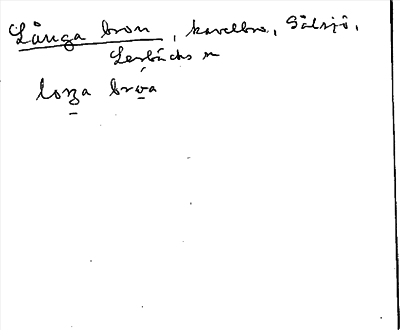 Långa bron, kavelbro, Gålsjö,
Lerbäcks sn
loŋa broa